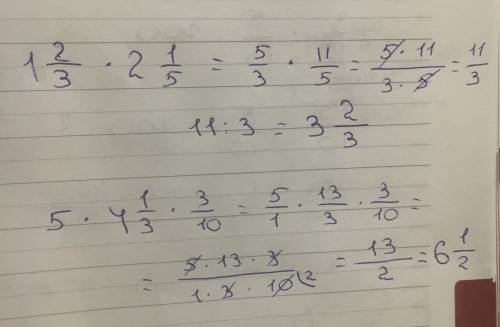 1 2/3 · 2 1/5 = 5/3 · 11/5 = 5 · 11/3 · 5 = 11/3
11 : 3 = 3 2/3
5 · 4 1/3 · 3/10 = 5/1 · 13/3 · 3/10 =
= 5 · 13 · 3/1 · 3 · 10 2 = 13/2 = 6 1/2